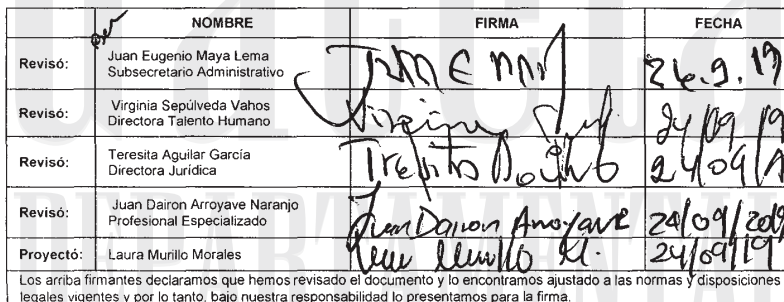 NOMBRE FIRMA FECHA
Revisó: Juan Eugenio Maya Lema
Subsecretario Administrativo 26.9.19
Revisó: Virginia Sepúlveda Vahos
Directora Talento Humano Virginia 24/09/19
Revisó: Teresita Aguilar García
Directora Jurídica 24/09/1
Revisó: Juan Dairon Arroyave Naranjo
Profesional Especializado Juan Dairon Arroyave 24/09/2019
Proyectó: Laura Murillo Morales Murillo M. 24/09/19
Los arriba firmantes declaramos que hemos revisado el documento y lo encontramos ajustado a las normas y disposiciones
legales vigentes y por lo tanto, bajo nuestra responsabilidad lo presentamos para la firma.